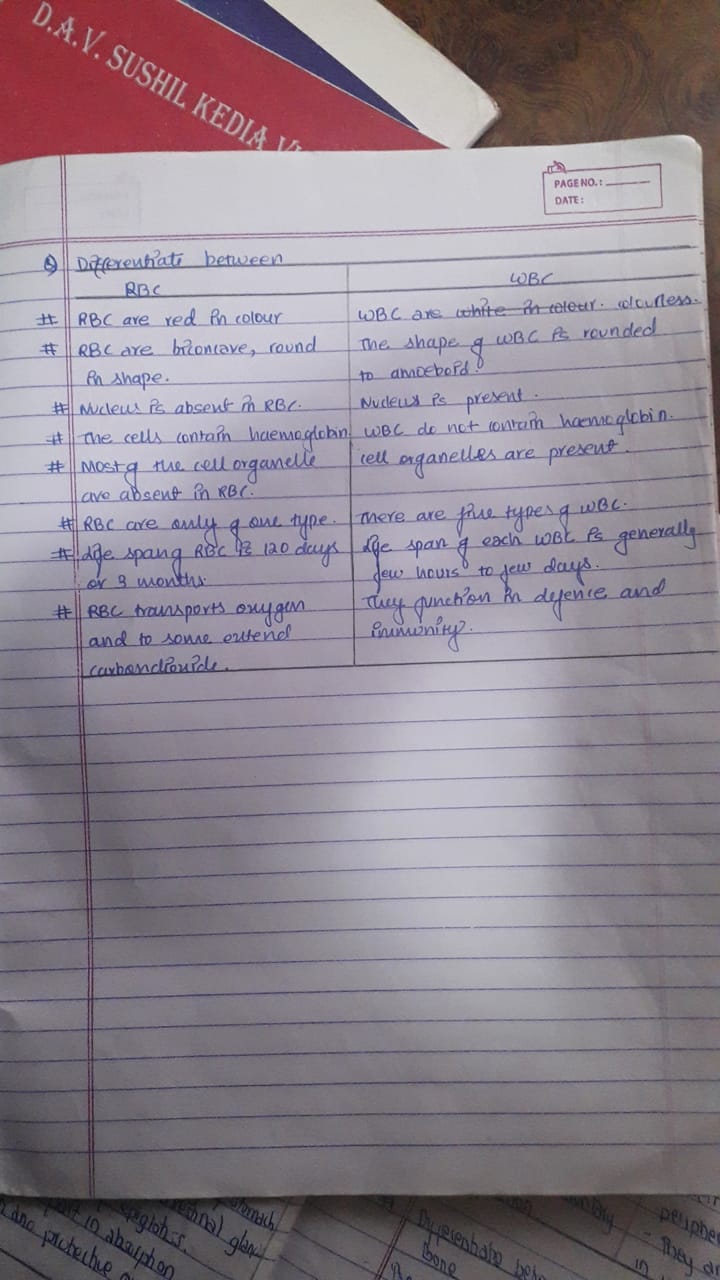 D.A.V. SUSHIL KEDIA
PAGE NO.:
DATE:
Q) Differentiate between
RBC
WBC
# RBC are red in colour
WBC are white in colour. colourless.
# RBC are biconcave, round
in shape.
The shape of WBC is rounded
to amoeboid.
# Nucleus is absent in RBC.
Nucleus is present.
# The cells contain haemoglobin.
WBC do not contain haemoglobin.
# Most of the cell organelle
are absent in RBC.
cell organelles are present.
# RBC are only of one type.
There are five types of WBC.
# Age span of RBC is 120 days
or 3 months.
Age span of each WBC is generally
few hours to few days.
# RBC transports oxygen
and to some extend
carbondioxide.
They function in defence and
immunity.
stomach
epiglottis.
in absorption
and protective
Differentiate
Bone
They
in